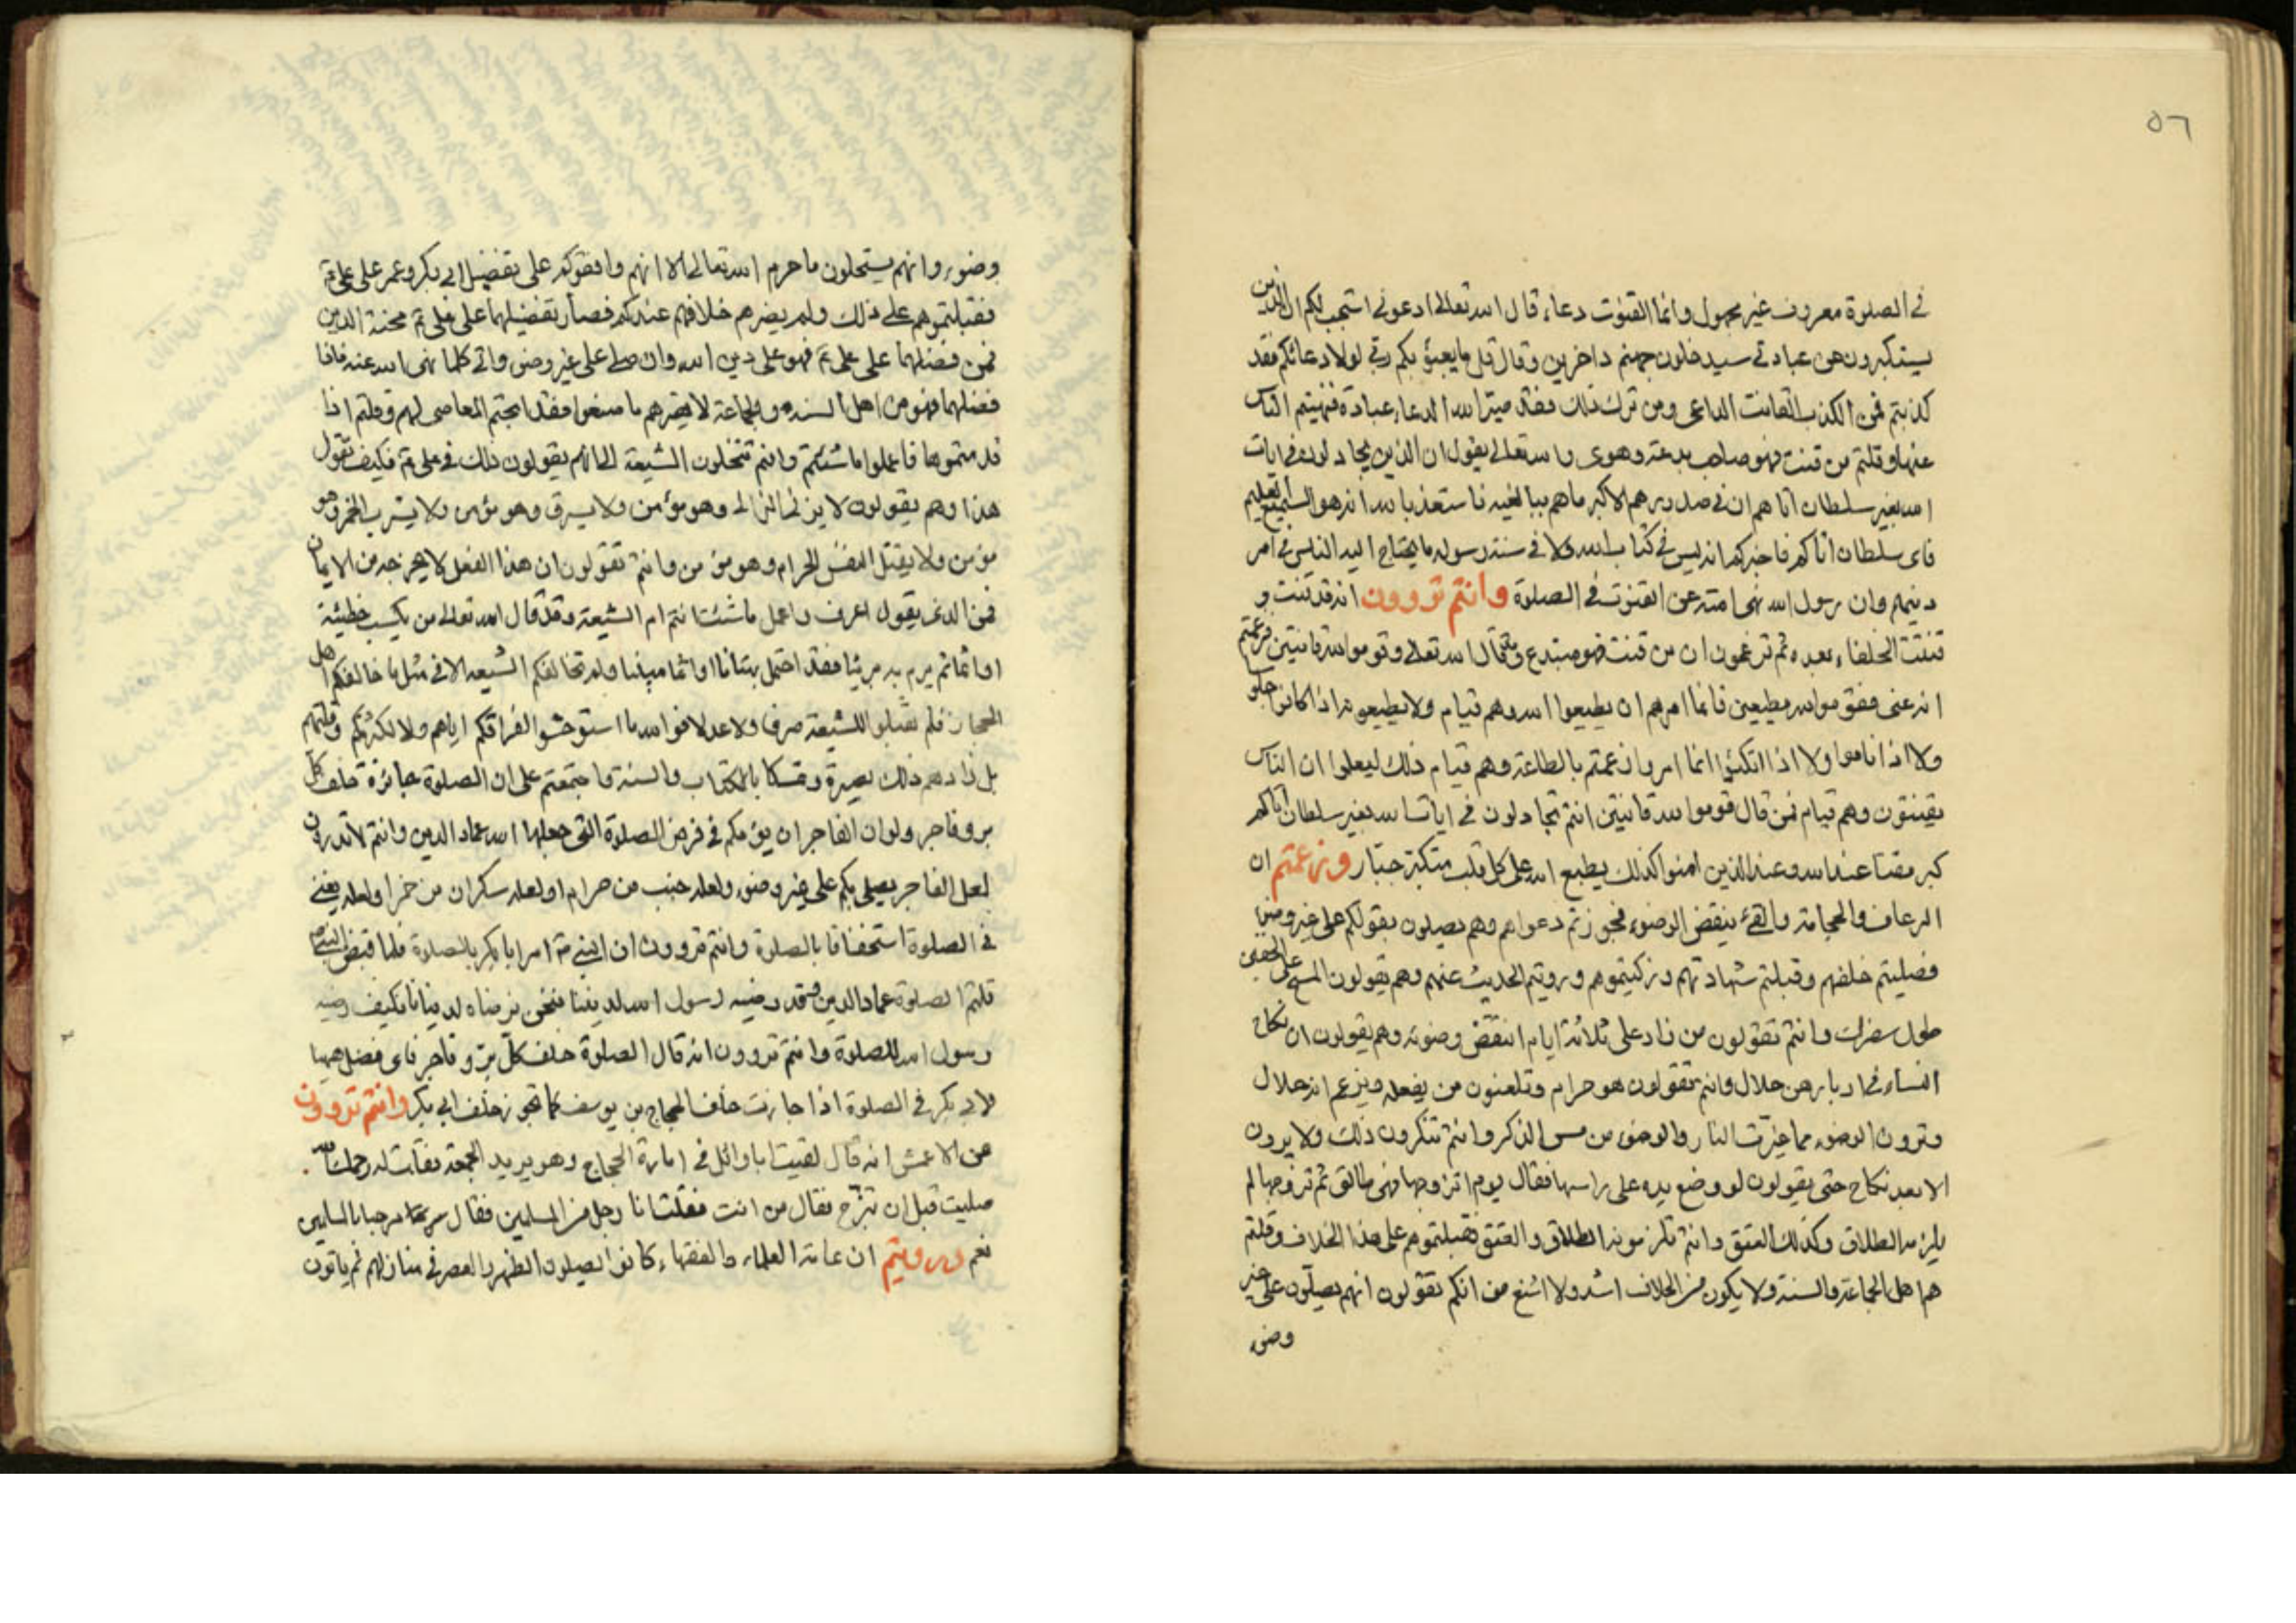 ٥٦
في الصلوة معروف غير مجهول وانما القنوت دعاء قال الله تعالى ادعوني استجب لكم ان الذين
يستكبرون عن عبادتي سيدخلون جهنم داخرين وقال قل ما يعبؤ بكم ربي لولا دعائكم فقد
كذبتم فمن الكذب القانت الداعي ومن ترك ذلك فقد الله الدعاء عبادة فنهيتم الناس
عنها وقلتم من قنت فهو صاحب بدعة وهوى والله تعالى يقول ان الذين يجادلون في ايات
الله بغير سلطان اتاهم ان في صدورهم الا كبر ما هم ببالغيه فاستعذ بالله انه هو السميع العليم
فاى سلطان اتاكم فاخبركم انه ليس في كتاب الله ولا في سنة رسوله ما يحتاج اليه الناس في امر
دينهم وان رسول الله نهى امته عن القنوت في الصلوة وانتم تروون انه قد قنت و
قنتت الخلفاء بعده ثم تزعمون ان من قنت فهو مبتدع وقال الله تعالى وقوموا لله قانتين فزعمتم
انه عنى فقوموا لله مطيعين فانما امرهم ان يطيعوا الله وهم قيام ولا يطيعونه اذا كانوا جلو
ولا اذا ناموا ولا اذا اتكئوا انما امروا زعمتم بالطاعة وهم قيام ذلك ليعلموا ان الناس
يقنتون وهم قيام فمن قال قوموا لله قانتين انتم تجادلون في ايات الله بغير سلطان اتاكم
كبر مقتا عند الله وعند الذين امنوا كذلك يطبع الله على كل قلب متكبر جبار وزعمتم ان
الرعاف والحجامة والقئ ينقض الوضوء فجوزتم دعواهم وهم يصلون بقولكم على غير وضوء
فصليتم خلفهم وقبلتم شهادتهم وزكيتموهم ورويتم الحديث عنهم وهم يقولون المسح على الخفين
طول سفرك وانتم تقولون من زاد على ثلاثة ايام انتقض وضوئه وهم يقولون ان نكاح
النساء في ادبارهن حلال وانتم تقولون هو حرام وتلعنون من يفعله ويزعم انه حلال
وترون الوضوء مما غيرت النار والوضوء من مس الذكر وانتم تنكرون ذلك ولا يرون
الا بعد نكاح حتى يقولون لو وضع يده على راسها فقال يوم اتزوجها فهى طالق ثم تزوجها لم
يلزمه الطلاق وكذلك العتق وانتم تلزمونه الطلاق والعتق فقبلتموهم على هذا الخلاف وقلتم
هم اهل الجماعة والسنة ولا يكون من الخلاف اشد ولا اشنع من انكم تقولون انهم يصلون على غير
وضوء
وضوء وانهم يستحلون ما حرم الله تعالى الا انهم وافقوكم على تفضيل ابي بكر وعمر على على ع
فقبلتموهم على ذلك ولم يضرهم خلافهم عندكم فصار تفضيلهما على على ع محنة الدين
فمن فضلهما على على ع فهو على دين الله وان صلى على غير وضوء واتى كلما نهى الله عنه فاذا
فضلهما فهو من اهل السنة والجماعة لا يضرهم ما صنعوا فقد ابحتم المعاصى لهم وقلتم اذا
قدمتموها فاعملوا ما شئتم وانتم تنحلون الشيعة انهم يقولون ذلك في على ع فكيف تقول
هذا وهم يقولون لا يزنى الزانى وهو مؤمن ولا يسرق وهو مؤمن ولا يشرب الخمر وهو
مؤمن ولا يقتل النفس الحرام وهو مؤمن وانتم تقولون ان هذا الفعل لا يخرجه من الايمان
فمن الذى يقول اعرف واعمل ما شئت انتم ام الشيعة وقد قال الله تعالى من يكسب خطيئة
او اثما ثم يرم به بريئا فقد احتمل بهتانا او اثما مبينا ولم تخالفكم الشيعة الا في مثل ما خالفكم اهل
الحجاز فلم تقبلوا للشيعة صرفا ولا عدلا فوالله ما استوحشوا لفراقكم اياهم ولا لكثرتكم وقلتهم
بل زادهم ذلك بصيرة وتمسكا بالكتاب والسنة واجتمعتم على ان الصلوة جائزة خلف كل
بر وفاجر ولو ان الفاجر ان يؤمكم في فرض الصلوة التى جعلها الله عماد الدين وانتم لا تدرون
لعل الفاجر يصلى بكم على غير وضوء ولعله جنب من حرام او لعله سكران من خمر او لعله يغنى
في الصلوة استخفافا بالصلوة وانتم تروون ان النبى ص امر ابا بكر بالصلوة فلما قبض النبى ص
قلتم الصلوة عماد الدين وقد رضيه رسول الله لديننا فنحن نرضاه لدنيانا فكيف رضيه
رسول الله للصلوة وانتم تروون انه قال الصلوة خلف كل بر وفاجر فاى فضل ههنا
لابي بكر في الصلوة اذا جازت خلف الحجاج بن يوسف كما تجوز خلف ابي بكر وانتم تروون
عن الاعمش انه قال لقيت ابا وائل في امارة الحجاج وهو يريد الجمعة فقلت له رحمك الله
صليت قبل ان تروح فقال من انت فقلت انا رجل من المسلمين فقال مرحبا بالمسلمين
نعم ورويتم ان عامة العلماء والفقهاء كانوا يصلون الظهر والعصر في منازلهم ثم ياتون